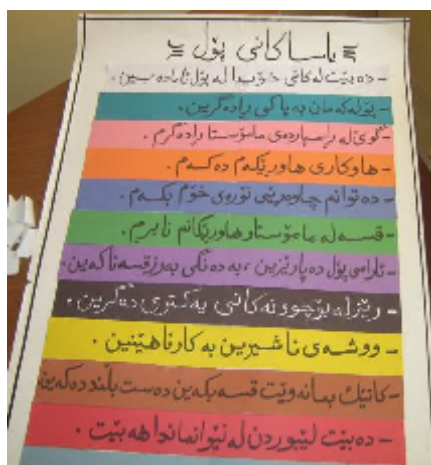 یاساکانی پۆل
- دەبێت لەکاتی خۆیدا لە پۆل ئامادەبین.
- پۆلەکەمان بە پاکی ڕادەگرین.
- گوێ لە ڕاسپاردەی مامۆستا ڕادەگرم.
- هاوکاری هاوڕێکەم دەکەم.
- دەتوانم چاوەڕێی نۆرەی خۆم بکەم.
- قسە لە مامۆستا و هاوڕێکانم نابڕم.
- ئارامی پۆل دەپارێزین، بە دەنگی بەرز قسە ناکەین.
- ڕێز لە بۆچوونەکانی یەکتری دەگرین.
- ووشەی ناشیرین بەکارناهێنین.
- کاتێك بمانەوێت قسە بکەین دەست بڵند دەکەین.
- دەبێت لێبوردن لە نێوانماندا هەبێت.